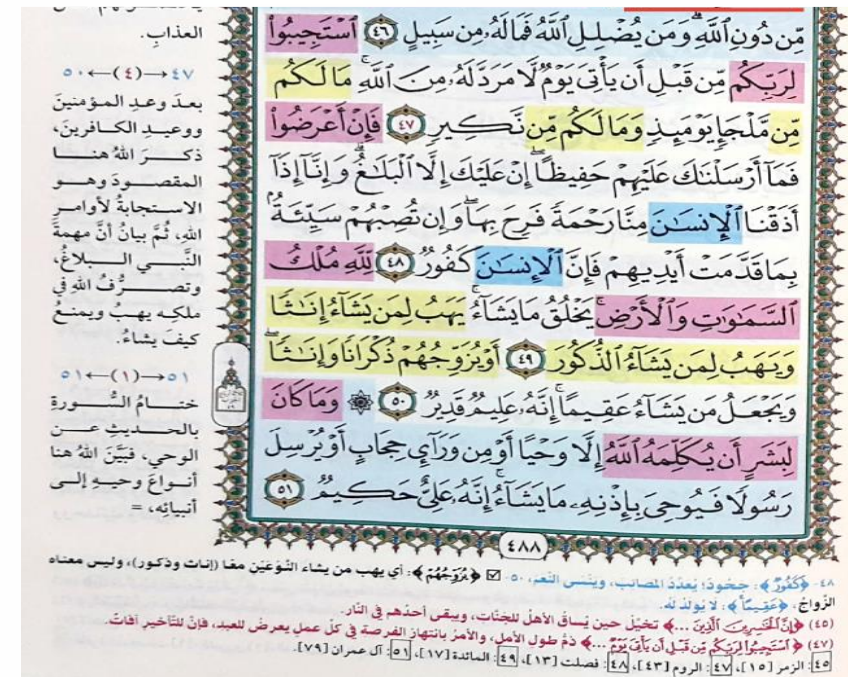 مِّن دُونِ ٱللَّهِ ۗ وَمَن يُضْلِلِ ٱللَّهُ فَمَا لَهُۥ مِن سَبِيلٍ ٤٦ ٱسْتَجِيبُوا۟
لِرَبِّكُم مِّن قَبْلِ أَن يَأْتِىَ يَوْمٌ لَّا مَرَدَّ لَهُۥ مِنَ ٱللَّهِ ۚ مَا لَكُم
مِّن مَّلْجَإٍ يَوْمَئِذٍ وَمَا لَكُم مِّن نَّكِيرٍ ٤٧ فَإِنْ أَعْرَضُوا۟
فَمَآ أَرْسَلْنَٰكَ عَلَيْهِمْ حَفِيظًا ۖ إِنْ عَلَيْكَ إِلَّا ٱلْبَلَٰغُ ۗ وَإِنَّآ إِذَآ
أَذَقْنَا ٱلْإِنسَٰنَ مِنَّا رَحْمَةً فَرِحَ بِهَا ۖ وَإِن تُصِبْهُمْ سَيِّئَةٌۢ
بِمَا قَدَّمَتْ أَيْدِيهِمْ فَإِنَّ ٱلْإِنسَٰنَ كَفُورٌ ٤٨ لِّلَّهِ مُلْكُ
ٱلسَّمَٰوَٰتِ وَٱلْأَرْضِ ۚ يَخْلُقُ مَا يَشَآءُ ۚ يَهَبُ لِمَن يَشَآءُ إِنَٰثًا
وَيَهَبُ لِمَن يَشَآءُ ٱلذُّكُورَ ٤٩ أَوْ يُزَوِّجُهُمْ ذُكْرَانًا وَإِنَٰثًا ۖ
وَيَجْعَلُ مَن يَشَآءُ عَقِيمًا ۚ إِنَّهُۥ عَلِيمٌ قَدِيرٌ ٥٠ ۞ وَمَا كَانَ
لِبَشَرٍ أَن يُكَلِّمَهُ ٱللَّهُ إِلَّا وَحْيًا أَوْ مِن وَرَآئِ حِجَابٍ أَوْ يُرْسِلَ
رَسُولًا فَيُوحِىَ بِإِذْنِهِۦ مَا يَشَآءُ ۚ إِنَّهُۥ عَلِىٌّ حَكِيمٌ ٥١
٤٨٨
العذابِ.
٤٧→(٤)←٥٠
بعدَ وعدِ المؤمنينَ
ووعيدِ الكافرينَ،
ذكرَ اللهُ هنا
المقصودَ وهو
الاستجابةُ لأوامرِ
اللهِ، ثُمَّ بيانُ أنَّ مهمةَ
النَّبي البلاغُ،
وتصرُّفُ اللهِ في
ملكِه يهبُ ويمنعُ
كيفَ يشاءُ.
٥١→(١)←٥١
ختامُ السُّورةِ
بالحديثِ عن
الوحي، فبيَّنَ اللهُ هنا
أنواعَ وحيِهِ إلى
أنبيائِه، =
٤٨- ﴿كَفُورٌ﴾: جحودٌ؛ يُعدِّدُ المصائبَ، وينسى النِّعمَ، ٥٠- ☑ ﴿يُزَوِّجُهُمْ﴾: أي يهب من يشاء النَّوعَيْنِ معًا (إناث وذكور)، وليس معناه
الزَّواجَ، ﴿عَقِيمًا﴾: لا يُولَدُ لَه.
(٤٥) ﴿إِنَّ ٱلْخَٰسِرِينَ ٱلَّذِينَ ...﴾ تخيَّلْ حين يُساقُ الأهلُ للجنَّاتِ، ويبقى أحدُهم في النَّار.
(٤٧) ﴿ٱسْتَجِيبُوا۟ لِرَبِّكُم مِّن قَبْلِ أَن يَأْتِىَ يَوْمٌ ...﴾ ذمُّ طولِ الأملِ، والأمرُ بانتهازِ الفرصةِ في كلِّ عملٍ يعرضُ للعبدِ، فإنَّ للتأخيرِ آفاتٌ.
٤٥: الزمر [١٥]، ٤٧: الروم [٤٣]، ٤٨: فصلت [١٣]، ٤٩: المائدة [١٧]، ٥١: آل عمران [٧٩].